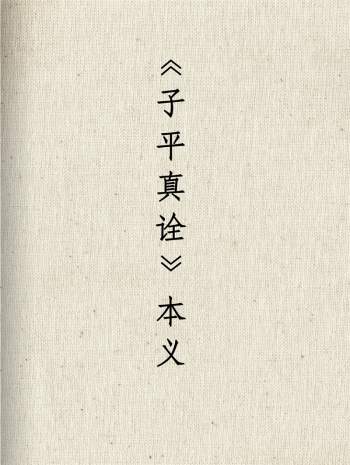 《子平真诠》本义